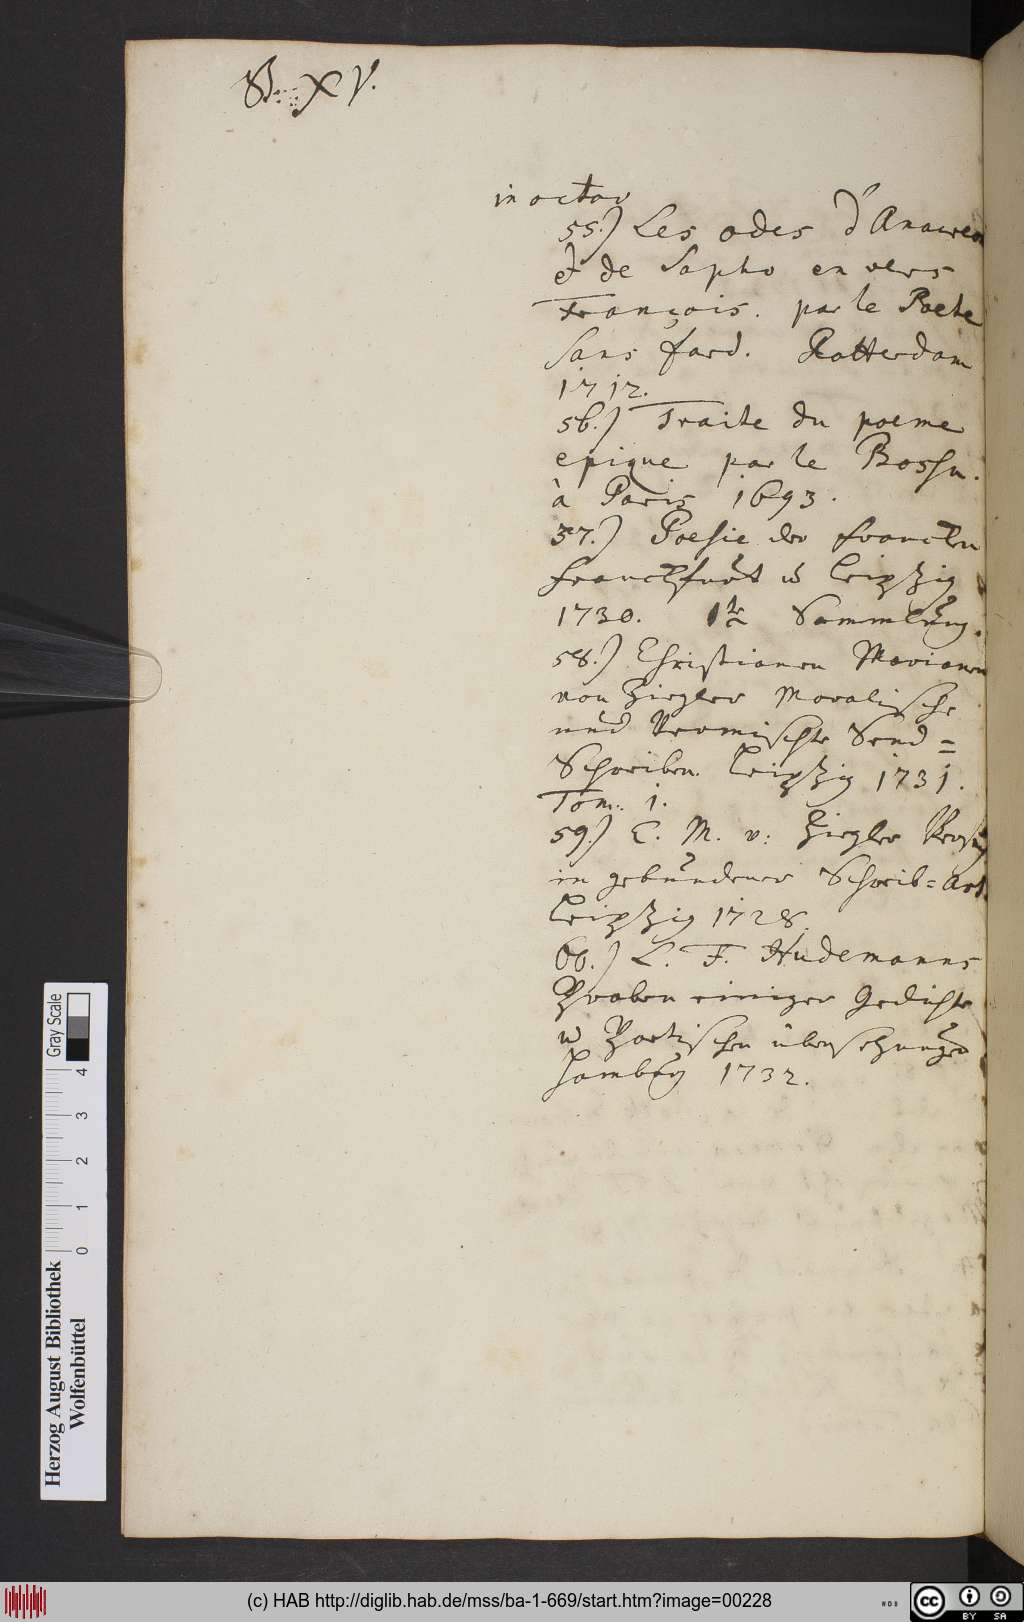 XV.
in octav
55.) Les odes d'Anacreon
et de Sapho en vers
François. par le Poete
sans fard. Rotterdam
1712.
56.) Traite du poeme
epique par le Bossu.
à Paris 1693.
57.) Poesie der Francken
Franckfurt u Leipzig
1730. 1te Sammlung.
58.) Christianen Marianen
von Ziegler Moralische
und Vermischte Send=
Schreiben. Leipzig 1731.
Tom. 1.
59.) C. M. v: Ziegler Versuch
in gebundener Schreib=Art
Leipzig 1728.
60.) L. F. Hudemanns
Proben einiger Gedichte
u Poetischen übersetzungen
Hamburg 1732.
Herzog August Bibliothek
Wolfenbüttel
0 1 2 3 4
Gray Scale
(c) HAB http://diglib.hab.de/mss/ba-1-669/start.htm?image=00228
cc BY SA